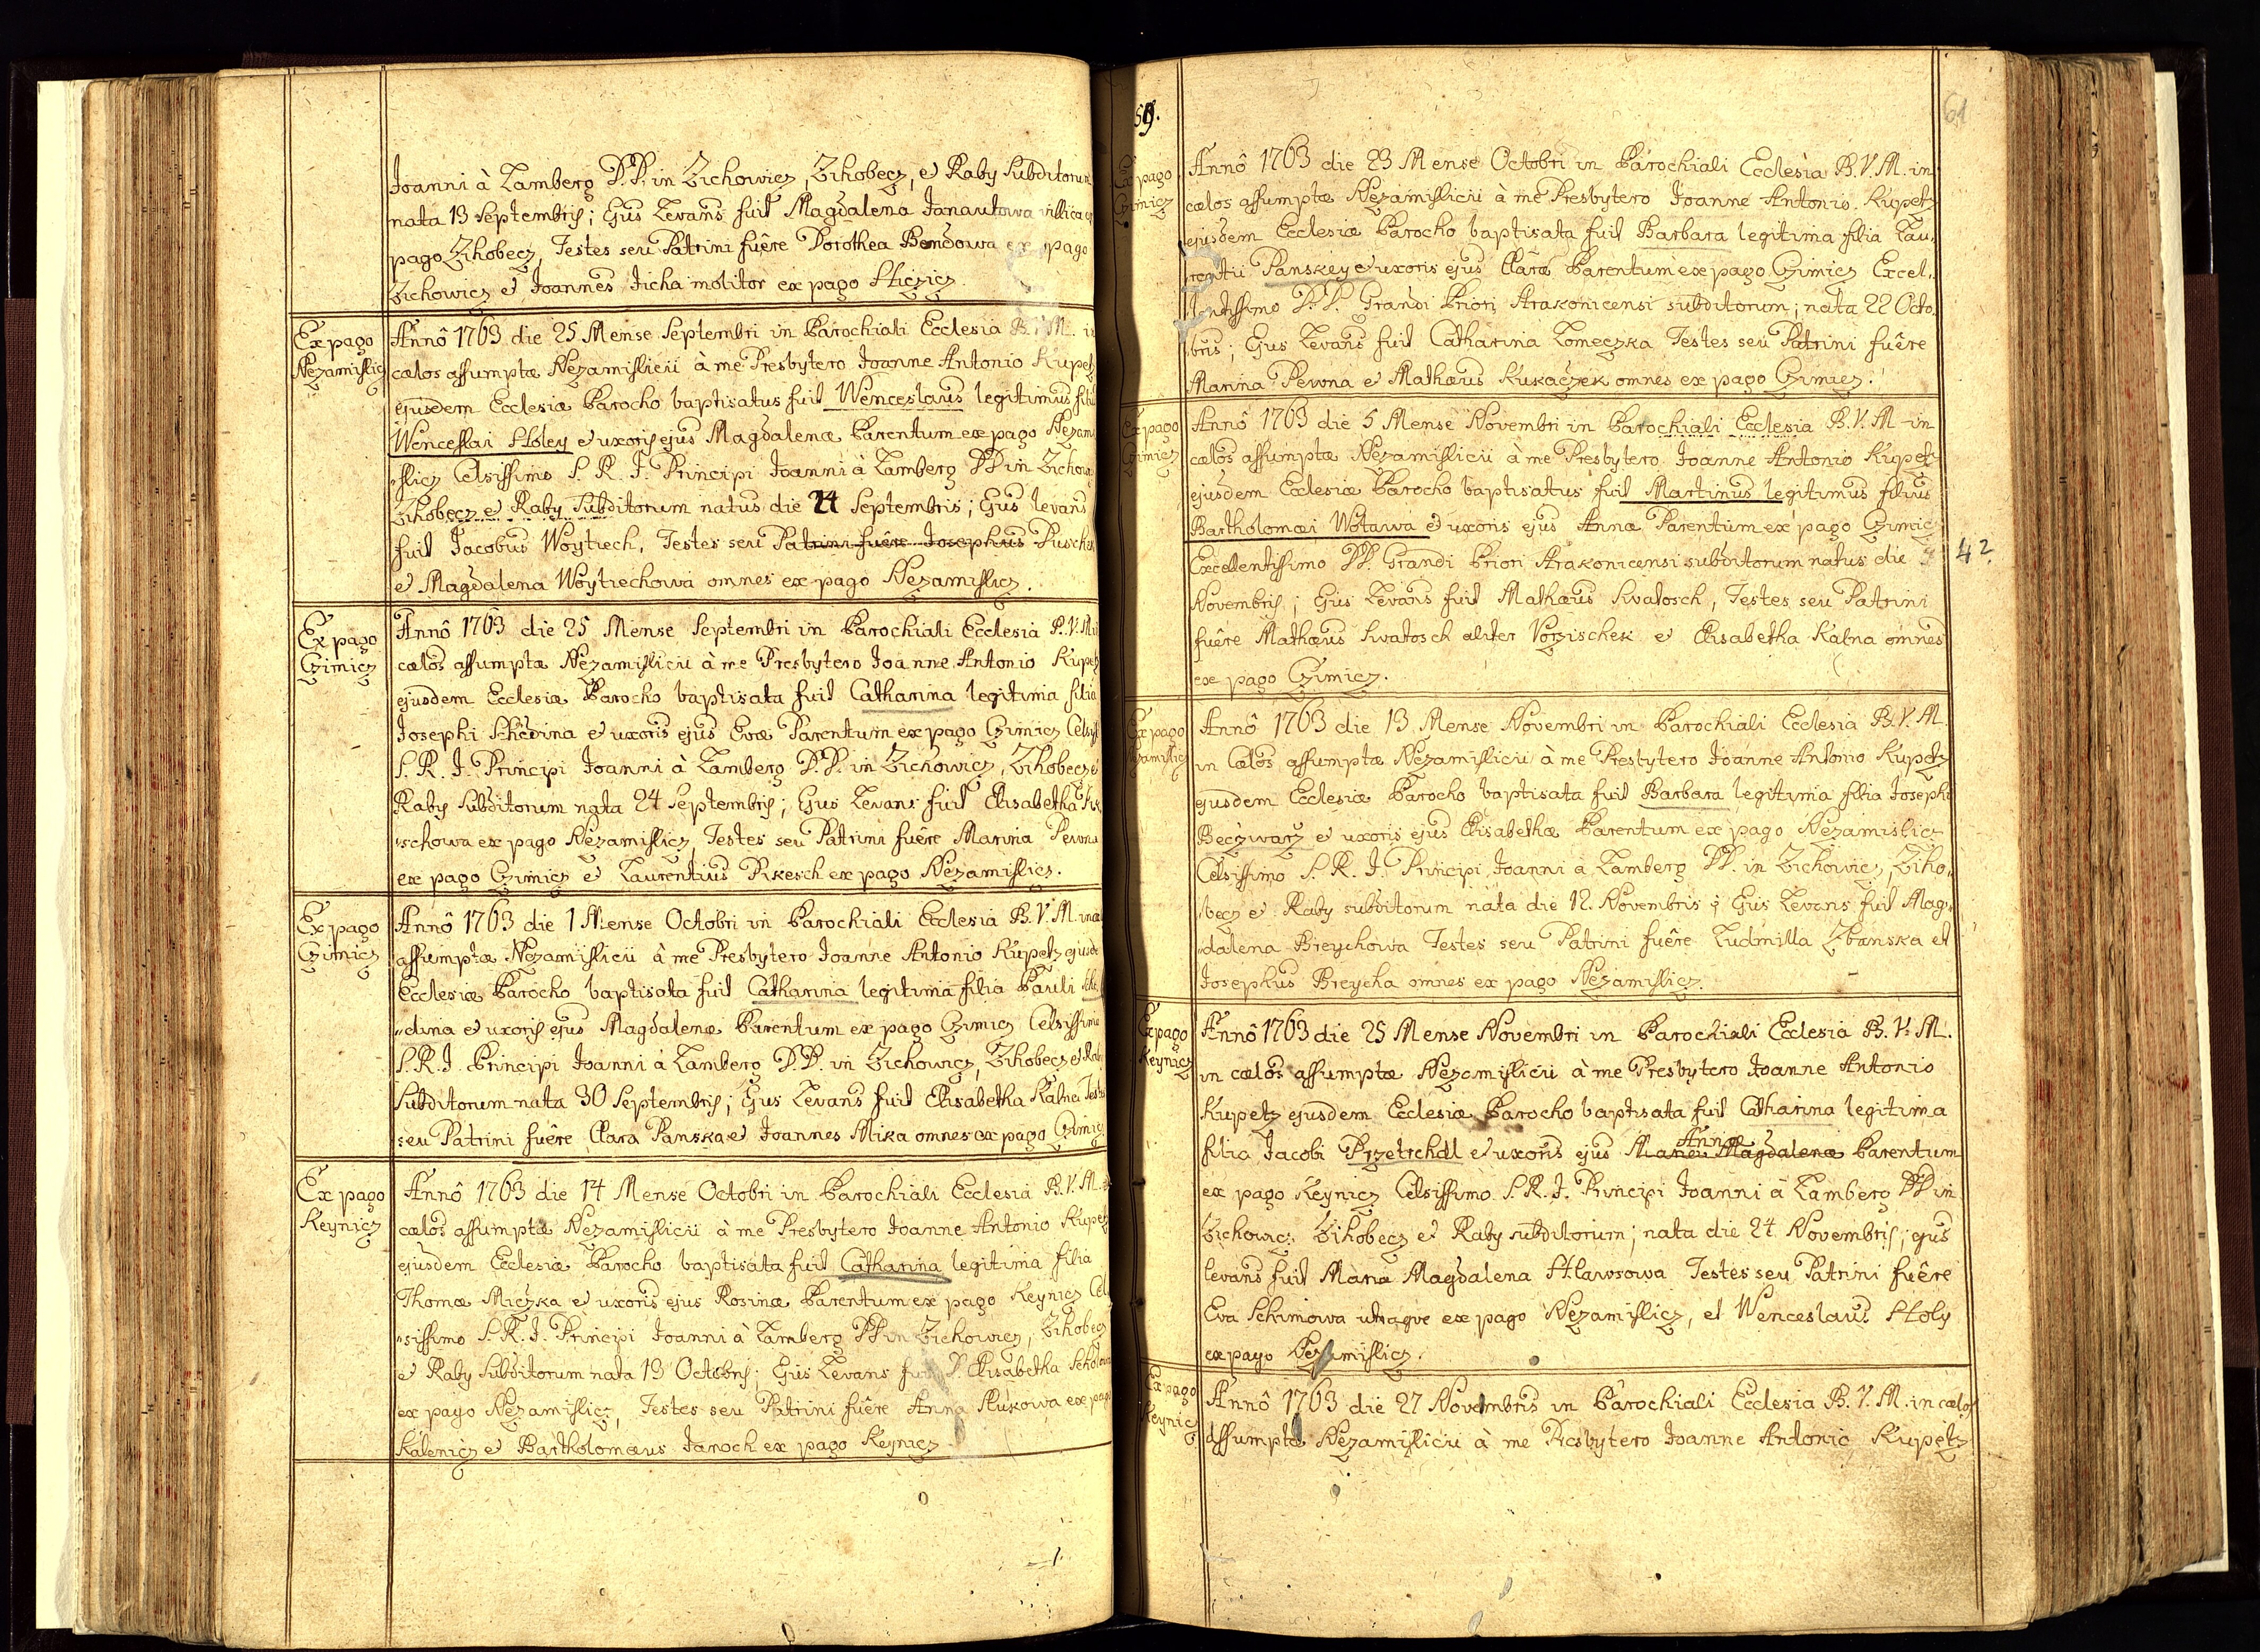 Joanni à Lamberg D.D. in Zichowicz, Zihobecz, et Raby Subditorum
nata 13 Septembris; Ejus Levans fuit Magdalena Janautowa villica ex
pago Zihobecz, Testes seu Patrini fuêre Dorothea Bendowa ex pago
Zichowicz et Joannes Jicha molitor ex pago Hliczicz.
Ex pago
Nezamislicz
Annô 1763 die 25 Mense Septembri in Parochiali Ecclesia B.V.M. in
cælos assumptæ Nezamislicii à me Presbytero Joanne Antonio Kupetz
ejusdem Ecclesiæ Parocho baptisatus fuit Wenceslaus legitimus filius
Wenceslai Holey et uxoris ejus Magdalenæ Parentum ex pago Nezami
„slicz Celsissimo S. R. J. Principi Joanni à Lamberg DD in Zichowicz
Zihobecz et Raby Subditorum natus die 24 Septembris; Ejus levans
fuit Jacobus Woytiech, Testes seu Patrini fuêre Josephus Duschek
et Magdalena Woytiechowa omnes ex pago Nezamislicz.
Ex pago
Czimicz
Annô 1763 die 25 Mense Septembri in Parochiali Ecclesia B.V.M in
cælos assumptæ Nezamislicii à me Presbytero Joanne Antonio Kupetz
ejusdem Ecclesiæ Parocho baptisata fuit Catharina legitima filia
Josephi Schedina et uxoris ejus Evæ Parentum ex pago Czimicz Celsiss
S. R. J. Principi Joanni à Lamberg D.D. in Zichowicz, Zihobecz et
Raby Subditorum nata 24 Septembris; Ejus Levans fuit Elisabetha
„schowa ex pago Nezamislicz Testes seu Patrini fuêre Marina Pewna
ex pago Czimicz et Laurentius Pikesch ex pago Nezamislicz.
Ex pago
Czimicz
Annô 1763 die 1 Mense Octobri in Parochiali Ecclesia B.V.M. in cæ
assumptæ Nezamislicii à me Presbytero Joanne Antonio Kupetz ejusde
Ecclesiæ Parocho baptisata fuit Catharina legitima filia Pauli Sche
„dina et uxoris ejus Magdalenæ Parentum ex pago Czimicz Celsissimo
S. R. J. Principi Joanni à Lamberg D.D. in Zichowicz, Zihobecz et Raby
Subditorum nata 30 Septembris; Ejus Levans fuit Elisabetha Kalna Testes
seu Patrini fuêre Clara Panska et Joannes Mika omnes ex pago Czimicz
Ex pago
Keynicz
Annô 1763 die 14 Mense Octobri in Parochiali Ecclesia B.V.M. in
cælos assumptæ Nezamislicii à me Presbytero Joanne Antonio Kupetz
ejusdem Ecclesiæ Parocho baptisata fuit Catharina legitima filia
Thomæ Miczka et uxoris ejus Rosinæ Parentum ex pago Keynicz Cel
„sissimo S. R. J. Principi Joanni à Lamberg DD in Zichowicz, Zihobecz
et Raby Subditorum nata 13 Octobris; Ejus Levans fuit D. Elisabetha
ex pago Nezamislicz, Testes seu Patrini fuêre Anna Slukowa ex pago
Kalenicz et Bartholomæus Janoch ex pago Keynicz
59.
61
Ex pago
Czimicz
Annô 1763 die 23 Mense Octobri in Parochiali Ecclesia B.V.M. in
cælos assumptæ Nezamislicii à me Presbytero Joanne Antonio Kupetz
ejusdem Ecclesiæ Parocho baptisata fuit Barbara legitima filia Lau„
rentii Panskey et uxoris ejus Claræ Parentum ex pago Czimicz Excel„
lentissimo D.D. Grandi Priori Strakonicensi subditorum; nata 22 Octo„
bris; Ejus Levans fuit Catharina Lomeczka Testes seu Patrini fuêre
Marina Pewna et Mathæus Kukaczek omnes ex pago Czimicz.
Ex pago
Czimicz
Annô 1763 die 5 Mense Novembri in Parochiali Ecclesia B.V.M in
cælos assumptæ Nezamislicii à me Presbytero Joanne Antonio Kupetz
ejusdem Ecclesiæ Parocho baptisatus fuit Martinus legitimus filius
Bartholomæi Wotawa et uxoris ejus Annæ Parentum ex pago Czimicz
Excellentissimo DD. Grandi Priori Strakonicensi subditorum natus die
4?
Novembris; Ejus Levans fuit Mathæus Kwatosch, Testes seu Patrini
fuêre Mathæus Kwatosch aliter Vorzischek et Elisabetha Kalna omnes
ex pago Czimicz.
Ex pago
Nezamislicz
Annô 1763 die 13 Mense Novembri in Parochiali Ecclesia B.V.M.
in Cælos assumptæ Nezamislicii à me Presbytero Joanne Antonio Kupetz
ejusdem Ecclesiæ Parocho baptisata fuit Barbara legitima filia Josephi
Beczwarz et uxoris ejus Elisabethæ Parentum ex pago Nezamislicz
Celsissimo S. R. J. Principi Joanni à Lamberg DD. in Zichowicz, Ziho„
becz et Raby subditorum nata die 12. Novembris; Ejus Levans fuit Mag„
„dalena Breychowa Testes seu Patrini fuêre Ludmilla Zbanska et
Josephus Breycha omnes ex pago Nezamislicz.
Ex pago
Keynicz
Annô 1763 die 25 Mense Novembri in Parochiali Ecclesia B.V.M.
in cælos assumptæ Nezamislicii à me Presbytero Joanne Antonio
Kupetz ejusdem Ecclesiæ Parocho baptisata fuit Catharina legitima
Annæ
filia Jacobi Przetrchdl et uxoris ejus Mariæ Magdalenæ Parentum
ex pago Keynicz Celsissimo S. R. J. Principi Joanni à Lamberg DD in
Zichowicz Zihobecz et Raby subditorum; nata die 24 Novembris; ejus
levans fuit Maria Magdalena Hlawsowa Testes seu Patrini fuêre
Eva Schimowa utraque ex pago Nezamislicz, et Wenceslaus Holy
ex pago Nezamislicz.
Ex pago
Keynicz
Annô 1763 die 27 Novembris in Parochiali Ecclesia B.V.M. in cælos
assumptæ Nezamislicii à me Presbytero Joanne Antonio Kupetz